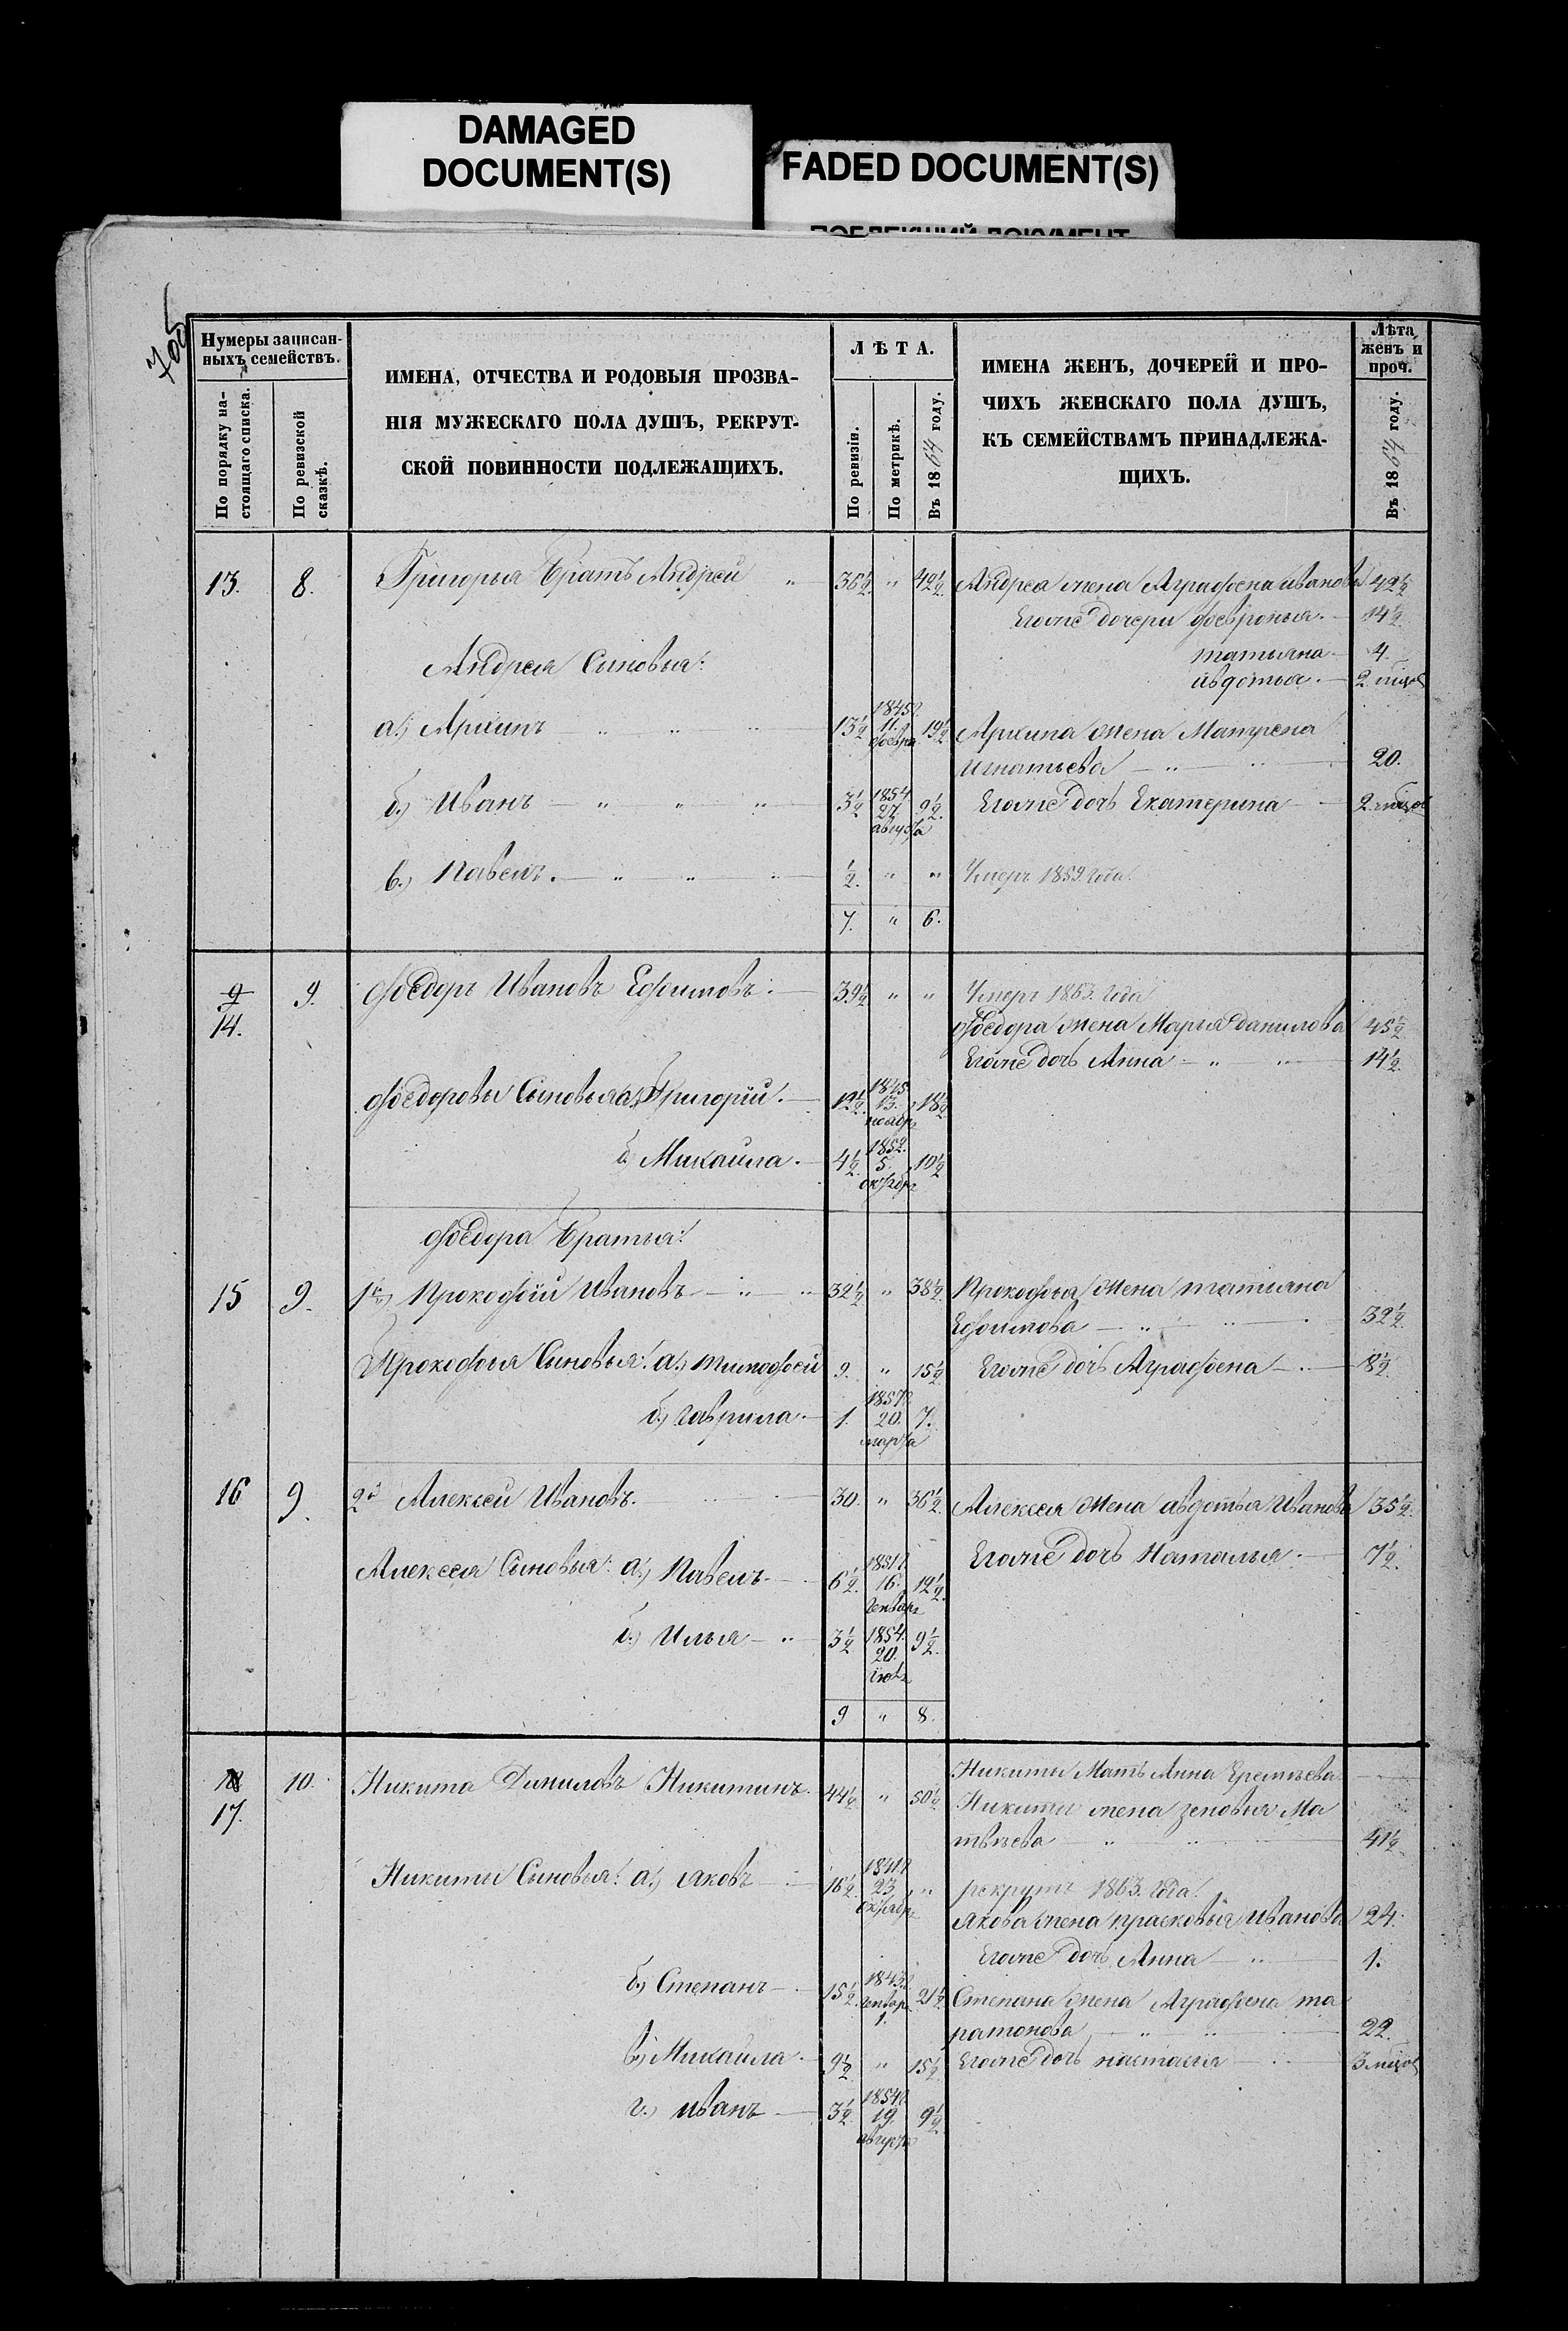 DAMAGED
DOCUMENT(S)
FADED DOCUMENT(S)
ПОБЛЕКШИЙ ДОКУМЕНТ
705
Нумеры записан-
ныхъ семействъ.
По порядку на-
стоящаго списка.
По ревизской
сказкѣ.
ИМЕНА, ОТЧЕСТВА И РОДОВЫЯ ПРОЗВА-
НІЯ МУЖЕСКАГО ПОЛА ДУШЪ, РЕКРУТ-
СКОЙ ПОВИННОСТИ ПОДЛЕЖАЩИХЪ.
ЛѢТА.
По ревизіи.
По метрикѣ.
Въ 1864 году.
ИМЕНА ЖЕНЪ, ДОЧЕРЕЙ И ПРО-
ЧИХЪ ЖЕНСКАГО ПОЛА ДУШЪ,
КЪ СЕМЕЙСТВАМЪ ПРИНАДЛЕЖА-
ЩИХЪ.
Лѣта
женъ и
проч.
Въ 1864 году.
13. 8. Григорья Братъ Андрей " 36½ " 42½ Андрея жена Аграфена иванова 42½
Егоже дочери февронья. 14½
Андрея Сыновья: татьяна 4.
авдотья. 2 мѣсяц
а.) Архипъ 13½ 1845 11 февр 19½ Архипа жена Матрена
Игнатьева 20.
б.) Иванъ " " " 3½ 1854 27 августа 9½ Егоже дочь Екатерина 2 мѣсяц
в.) Павелъ. " " " ½ " " Умеръ 1859 года.
7. " 6.
9
14. 9. Федоръ Ивановъ Ефимовъ: 39½ " " Умеръ 1863 года
Федора жена Марья данилова 45½
Егоже дочь Анна " 14½
Федоровы Сыновья а.) Григорій. 12½ 1845 13. ноябр 18½
б. Михайла. 4½ 1852. 5. октябр 10½
Федора Братья:
15 9. 1й Прокофій Ивановъ 32½ " 38½ Прокофья Жена татьяна
Ефимова 32½
Прокофья Сыновья: а.) тимофей 9. " 15½ Егоже дочь Аграфена 8½
б.) гаврила. 1. 1857 20. марта 7.
16 9. 2й Алексей Ивановъ. 30. " 36½ Алексея Жена авдотья Иванова 35½
Алексея Сыновья: а.) Павелъ 6½ 1851 16. Генваря 12½ Егоже дочь Наталья. 7½
б.) Илья " 3½ 1854. 20. 9½
9 " 8.
17. 10. Никита Даниловъ Никитинъ. 44½ " 50½ Никиты Мать Анна Еремѣева
Никиты жена зеновья Ма
твѣева 41½
Никиты Сыновья: а.) яковъ 16½ 1841 23 октябр " рекрутъ 1863. года.
якова жена прасковья Иванова 24.
Егоже дочь Анна " 1.
б.) Степанъ 15½ 1843 Генвар 1. 21½ Степана жена Аграфена та
ратонова 22.
в.) Михайла. 9½ " 15½ Егоже дочь настасья 3 мѣсяц
г.) иванъ 3½ 1854 19. августа 9½